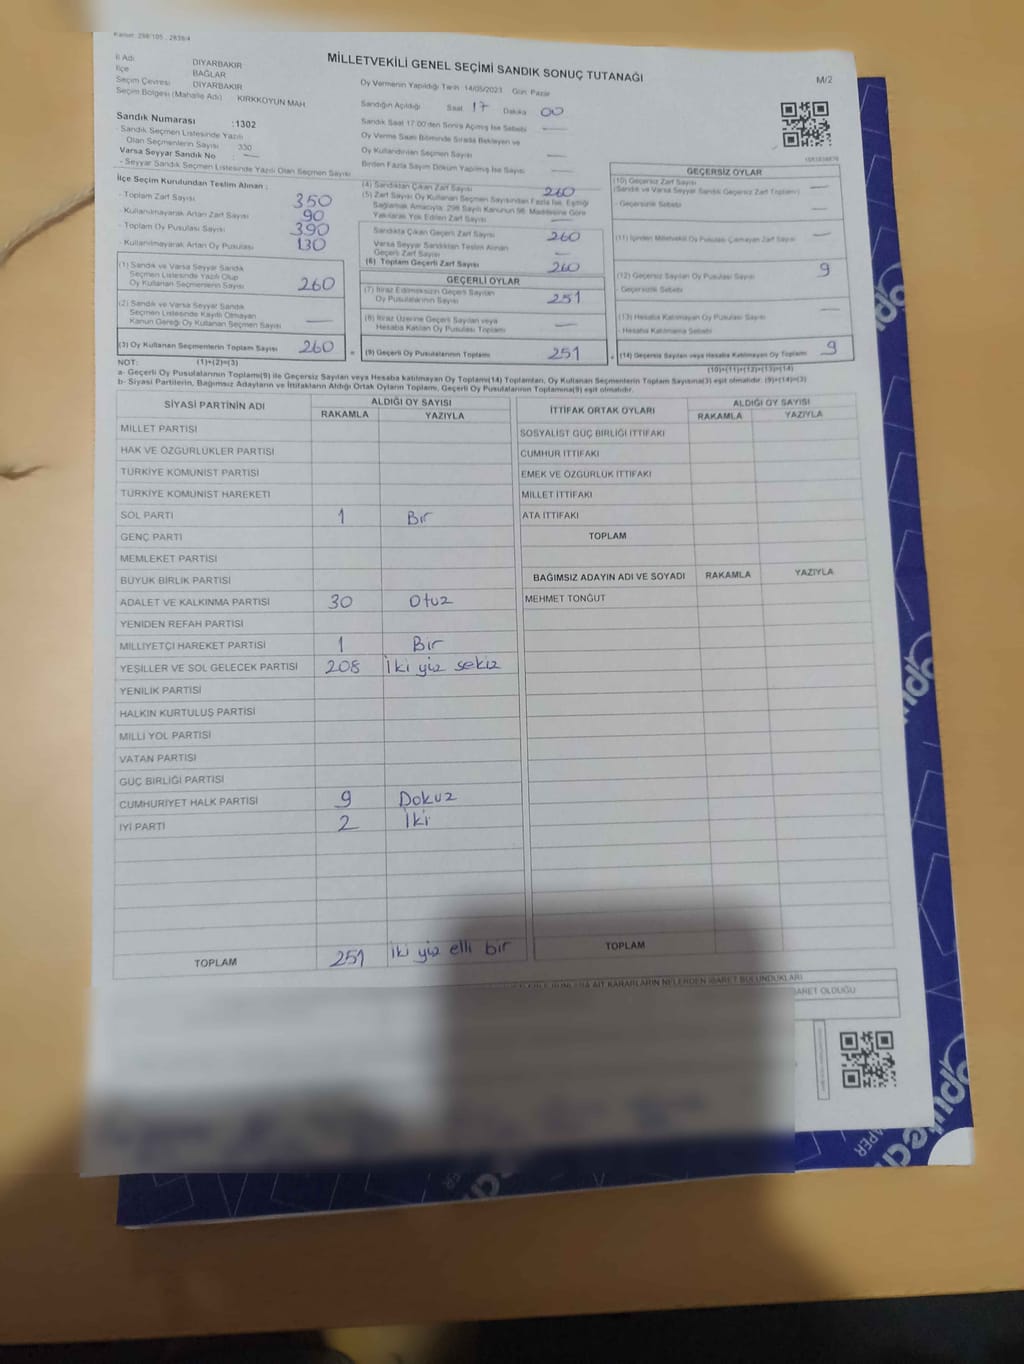 Kanun: 298/105 , 2839/4
MİLLETVEKİLİ GENEL SEÇİMİ SANDIK SONUÇ TUTANAĞI
M/2
İl Adı DİYARBAKIR
İlçe BAĞLAR
Seçim Çevresi DİYARBAKIR
Seçim Bölgesi (Mahalle Adı) KIRKKOYUN MAH.
Sandık Numarası :1302
Sandık Seçmen Listesinde Yazılı
Olan Seçmenlerin Sayısı 330
Varsa Seyyar Sandık No : —
- Seyyar Sandık Seçmen Listesinde Yazılı Olan Seçmen Sayısı
Oy Vermenin Yapıldığı Tarih 14/05/2023 Gün Pazar
Sandığın Açıldığı Saat 17 Dakika 00
Sandık Saat 17:00'den Sonra Açılmış İse Sebebi —
Oy Verme Saati Bitiminde Sırada Bekleyen ve
Oy Kullandırılan Seçmen Sayısı —
Birden Fazla Sayım Döküm Yapılmış İse Sayısı —
İlçe Seçim Kurulundan Teslim Alınan :
- Toplam Zarf Sayısı 350
- Kullanılmayarak Artan Zarf Sayısı 90
- Toplam Oy Pusulası Sayısı 390
- Kullanılmayarak Artan Oy Pusulası 130
(1) Sandık ve Varsa Seyyar Sandık
Seçmen Listesinde Yazılı Olup
Oy Kullanan Seçmenlerin Sayısı 260
(2) Sandık ve Varsa Seyyar Sandık
Seçmen Listesinde Kayıtlı Olmayan
Kanun Gereği Oy Kullanan Seçmen Sayısı —
(3) Oy Kullanan Seçmenlerin Toplam Sayısı 260
(4) Sandıktan Çıkan Zarf Sayısı 260
(5) Zarf Sayısı Oy Kullanan Seçmen Sayısından Fazla İse, Eşitliği
Sağlamak Amacıyla, 298 Sayılı Kanunun 98. Maddesine Göre
Yakılarak Yok Edilen Zarf Sayısı —
Sandıkta Çıkan Geçerli Zarf Sayısı 260
Varsa Seyyar Sandıktan Teslim Alınan
Geçerli Zarf Sayısı —
(6) Toplam Geçerli Zarf Sayısı 260
GEÇERLİ OYLAR
(7) İtiraz Edilmeksizin Geçerli Sayılan
Oy Pusulalarının Sayısı 251
(8) İtiraz Üzerine Geçerli Sayılan veya
Hesaba Katılan Oy Pusulası Toplamı —
(9) Geçerli Oy Pusulalarının Toplamı 251
GEÇERSİZ OYLAR
(10) Geçersiz Zarf Sayısı
(Sandık ve Varsa Seyyar Sandık Geçersiz Zarf Toplamı) —
- Geçersizlik Sebebi —
(11) İçinden Milletvekili Oy Pusulası Çıkmayan Zarf Sayısı —
(12) Geçersiz Sayılan Oy Pusulası Sayısı 9
- Geçersizlik Sebebi
(13) Hesaba Katılmayan Oy Pusulası Sayısı —
- Hesaba Katılmama Sebebi
(14) Geçersiz Sayılan veya Hesaba Katılmayan Oy Toplamı 9
NOT: (1)+(2)=(3) (10)+(11)+(12)+(13)=(14)
a- Geçerli Oy Pusulalarının Toplamı(9) ile Geçersiz Sayılan veya Hesaba katılmayan Oy Toplamı(14) Toplamları, Oy Kullanan Seçmenlerin Toplam Sayısına(3) eşit olmalıdır. (9)+(14)=(3)
b- Siyasi Partilerin, Bağımsız Adayların ve İttifakların Aldığı Ortak Oyların Toplamı, Geçerli Oy Pusulalarının Toplamına(9) eşit olmalıdır.
SİYASİ PARTİNİN ADI ALDIĞI OY SAYISI
RAKAMLA YAZIYLA
MİLLET PARTİSİ
HAK VE ÖZGÜRLÜKLER PARTİSİ
TÜRKİYE KOMÜNİST PARTİSİ
TÜRKİYE KOMÜNİST HAREKETİ
SOL PARTİ 1 Bir
GENÇ PARTİ
MEMLEKET PARTİSİ
BÜYÜK BİRLİK PARTİSİ
ADALET VE KALKINMA PARTİSİ 30 Otuz
YENİDEN REFAH PARTİSİ
MİLLİYETÇİ HAREKET PARTİSİ 1 Bir
YEŞİLLER VE SOL GELECEK PARTİSİ 208 İki yüz sekiz
YENİLİK PARTİSİ
HALKIN KURTULUŞ PARTİSİ
MİLLİ YOL PARTİSİ
VATAN PARTİSİ
GÜÇ BİRLİĞİ PARTİSİ
CUMHURİYET HALK PARTİSİ 9 Dokuz
İYİ PARTİ 2 İki
TOPLAM 251 iki yüz elli bir
İTTİFAK ORTAK OYLARI ALDIĞI OY SAYISI
RAKAMLA YAZIYLA
SOSYALİST GÜÇ BİRLİĞİ İTTİFAKI
CUMHUR İTTİFAKI
EMEK VE ÖZGÜRLÜK İTTİFAKI
MİLLET İTTİFAKI
ATA İTTİFAKI
TOPLAM
BAĞIMSIZ ADAYIN ADI VE SOYADI RAKAMLA YAZIYLA
MEHMET TONĞUT
TOPLAM
AİT KARARLARIN NELERDEN İBARET BULUNDUKLARI
OLDUĞU